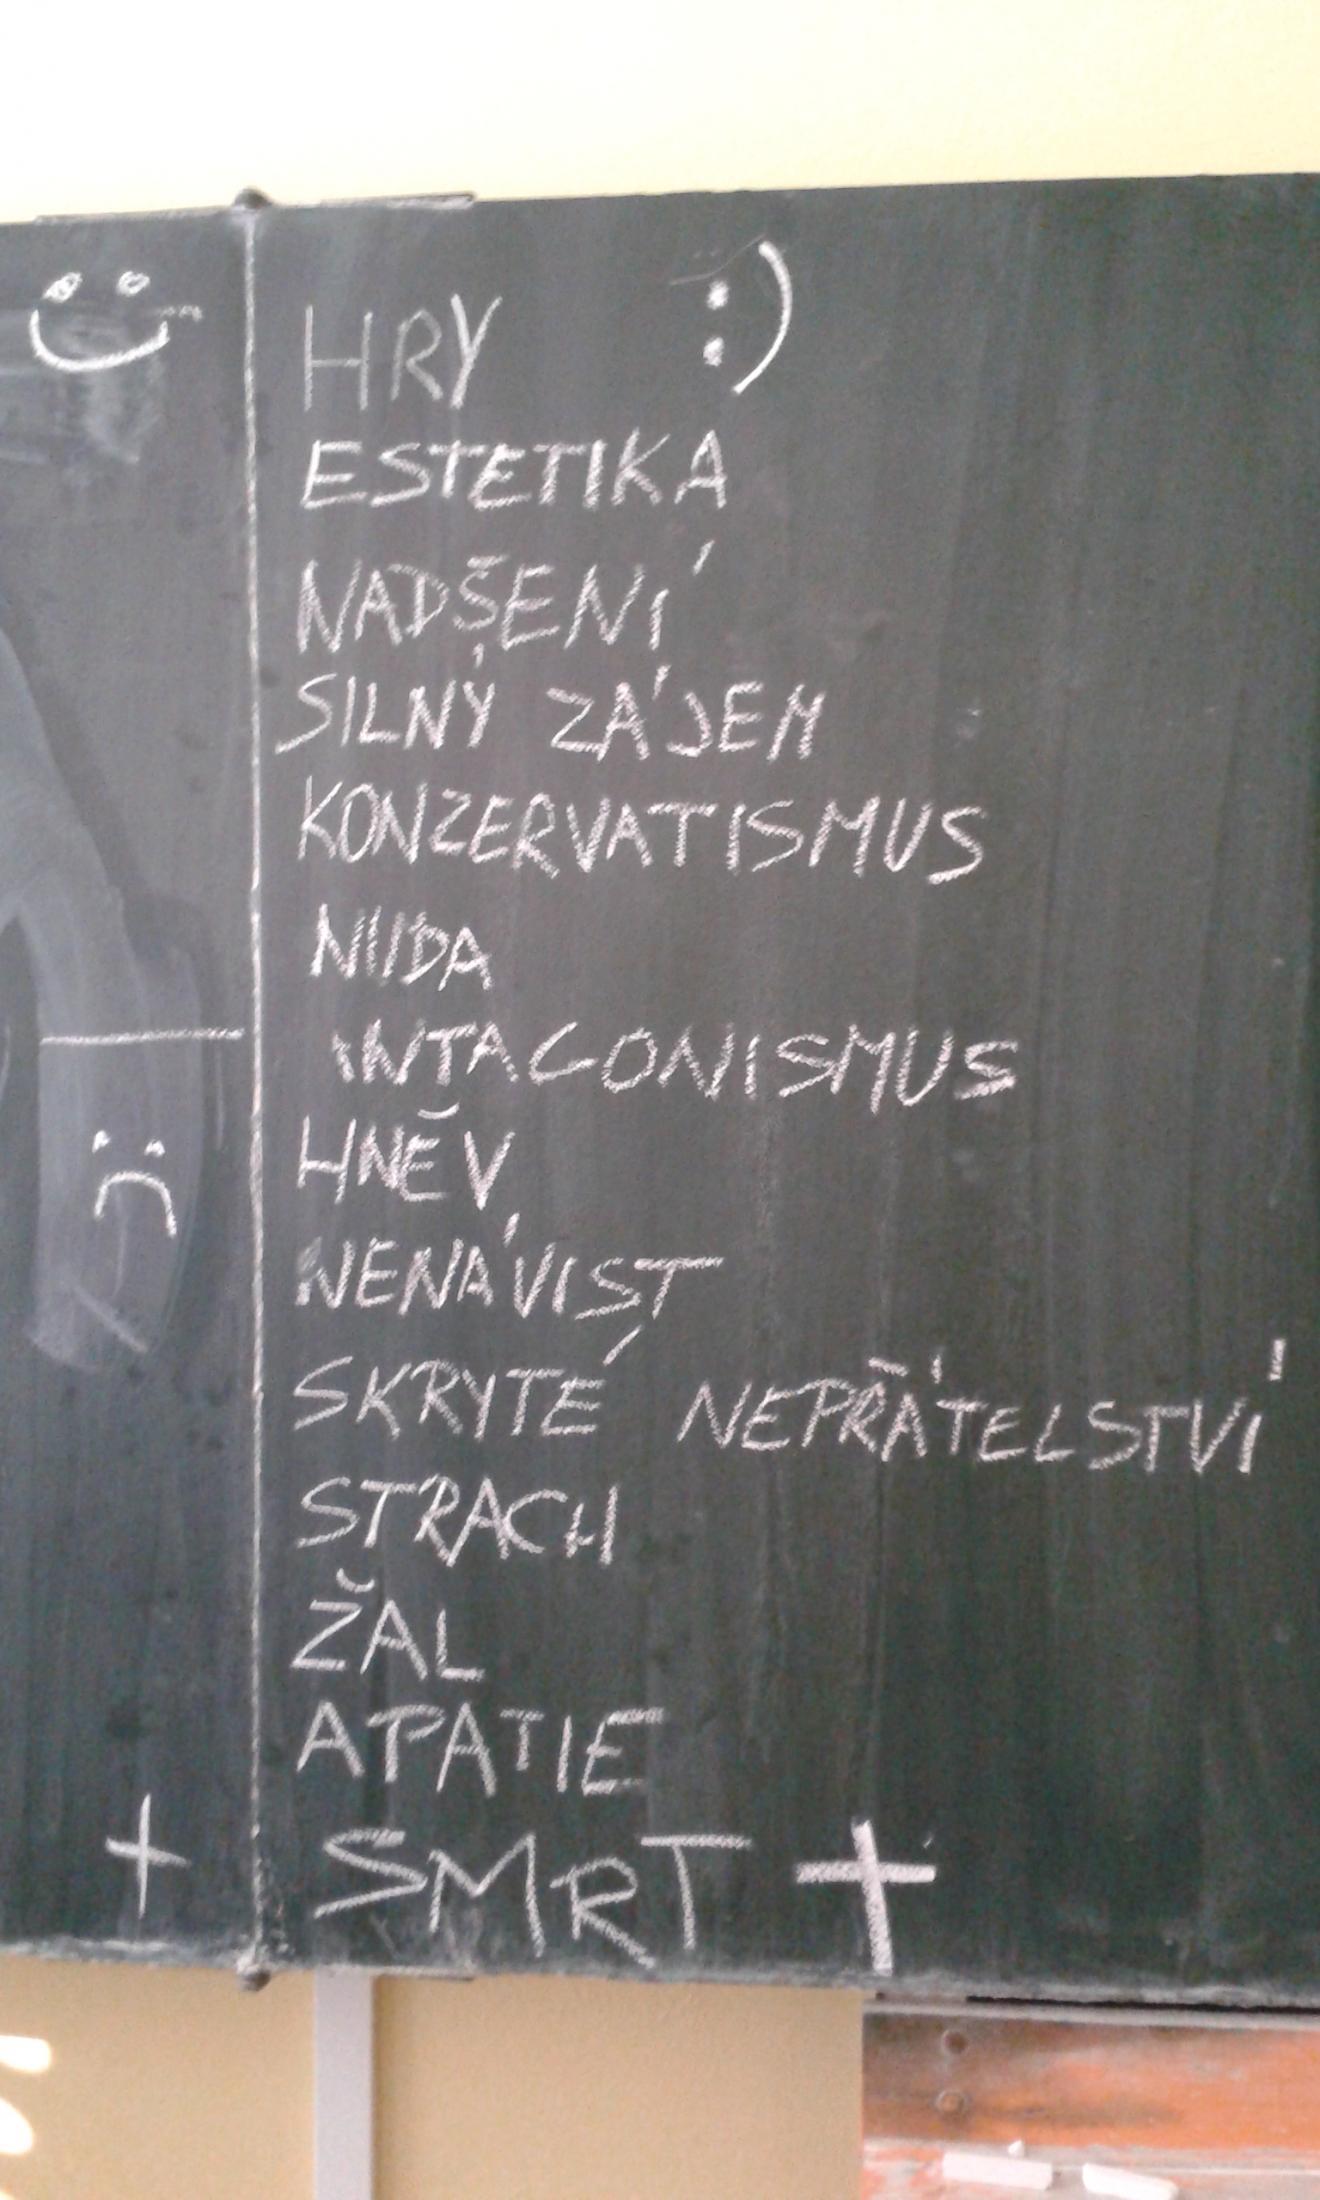 HRY :)
ESTETIKA
NADŠENÍ
SILNÝ ZÁJEM
KONZERVATISMUS
NUDA
ANTAGONISMUS
HNĚV
NENÁVIST
SKRYTÉ NEPŘÁTELSTVÍ
STRACH
ŽAL
APATIE
SMRT